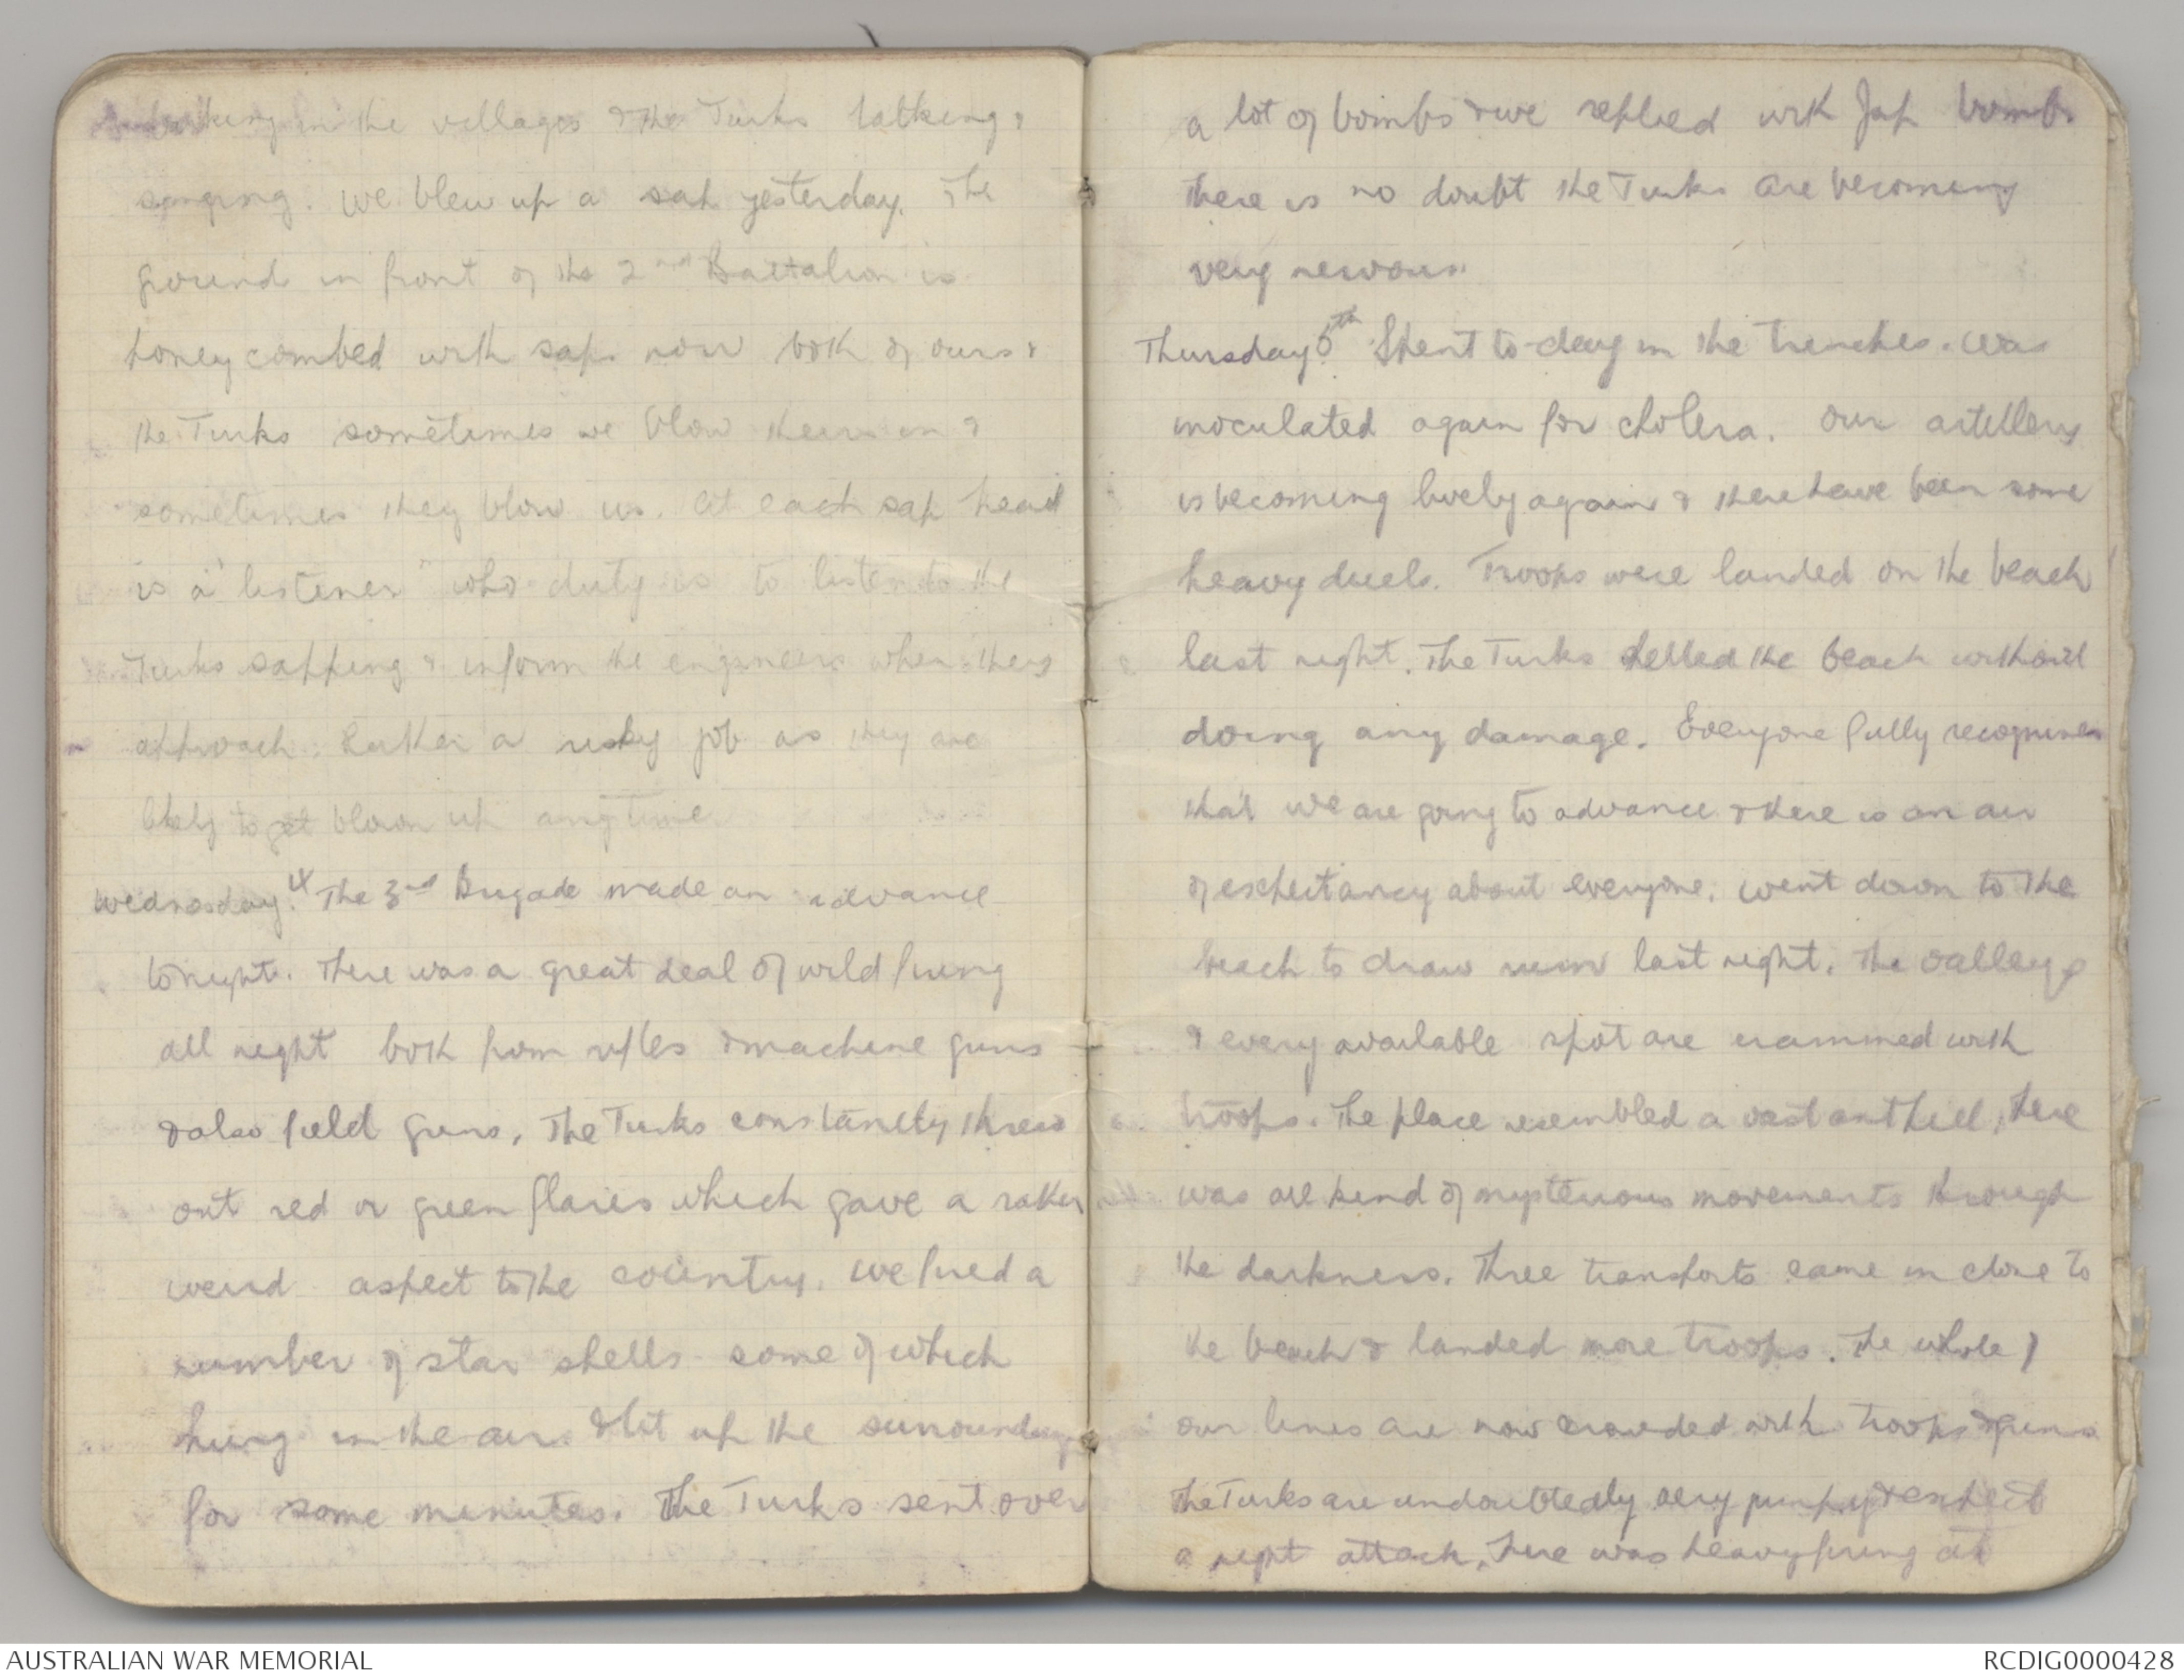 barking in the villages & the Turks talking &
singing. We blew up a sap yesterday. The
ground in front of the 2nd Battalion is
honeycombed with saps now both of ours &
the Turks sometimes we blow theirs in &
sometimes they blow us. At each sap head
is a "listener" who duty is to listen to the
Turks sapping & inform the engineers when they
approach. Rather a risky job as they are
likely to get blown up anytime
Wednesday 4. The 3rd Brigade made an advance
tonight. There was a great deal of wild firing
all night both from rifles & machine guns
& also field guns. The Turks constantly threw
out red or green flares which gave a rather
weird aspect to the country. We fired a
number of star shells some of which
hung in the air & lit up the surroundings
for some minutes. The Turks sent over
a lot of bombs & we replied with Jap bombs
there is no doubt the Turks are becoming
very nervous
Thursday 5th Spent to-day in the trenches. Was
inoculated again for cholera. Our artillery
is becoming lively again & there have been some
heavy duels. Troops were landed on the beach
last night. The Turks shelled the beach without
doing any damage. Everyone fully recognises
that we are going to advance & there is an air
of expectancy about everyone. Went down to the
beach to draw rum last night. The valley
& every available spot are crammed with
troops. The place resembled a vast anthill, there
was all kind of mysterious movements through
the darkness. Three transports came in close to
the beach & landed more troops. The whole of
our lines are now crowded with troops & guns
The Turks are undoubtedly very jumpy & expect
a night attack, there was heavy firing at
AUSTRALIAN WAR MEMORIAL
RCDIG0000428